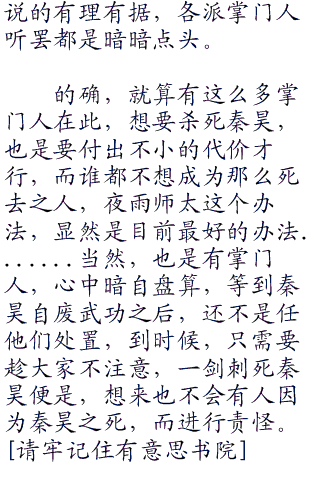 说的有理有据，各派掌门人
听罢都是暗暗点头。
的确，就算有这么多掌
门人在此，想要杀死秦昊，
也是要付出不小的代价才
行，而谁都不想成为那么死
去之人，夜雨师太这个办
法，显然是目前最好的办法.
......当然，也是有掌门
人，心中暗自盘算，等到秦
昊自废武功之后，还不是任
他们处置，到时候，只需要
趁大家不注意，一剑刺死秦
昊便是，想来也不会有人因
为秦昊之死，而进行责怪。
[请牢记住有意思书院]